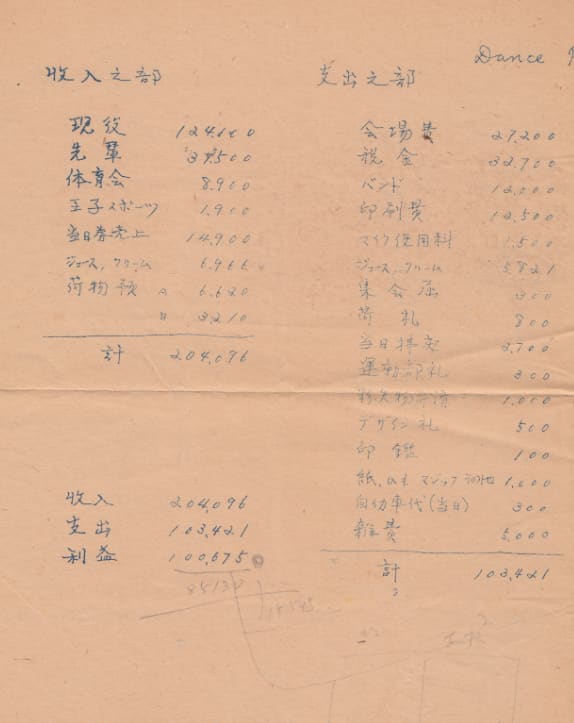 Dance
収入之部
現役 124,100
先輩 37,500
体育会 8,900
王子スポーツ 1,900
当日券売上 14,900
ジュース、クリーム 6,966
荷物預 A 6,620
B 3,210
計 204,096
収入 204,096
支出 103,421
利益 100,675
支出之部
会場費 27,200
税金 32,700
バンド 12,000
印刷費 12,500
マイク使用料 1,500
ジュース、クリーム 5,821
集会届 300
荷札 800
当日 2,700
運動部礼 300
1,000
デザイン礼 500
印鑑 100
紙、マジック 1,000
自動車代(当日) 300
雑費 5,000
計 103,421